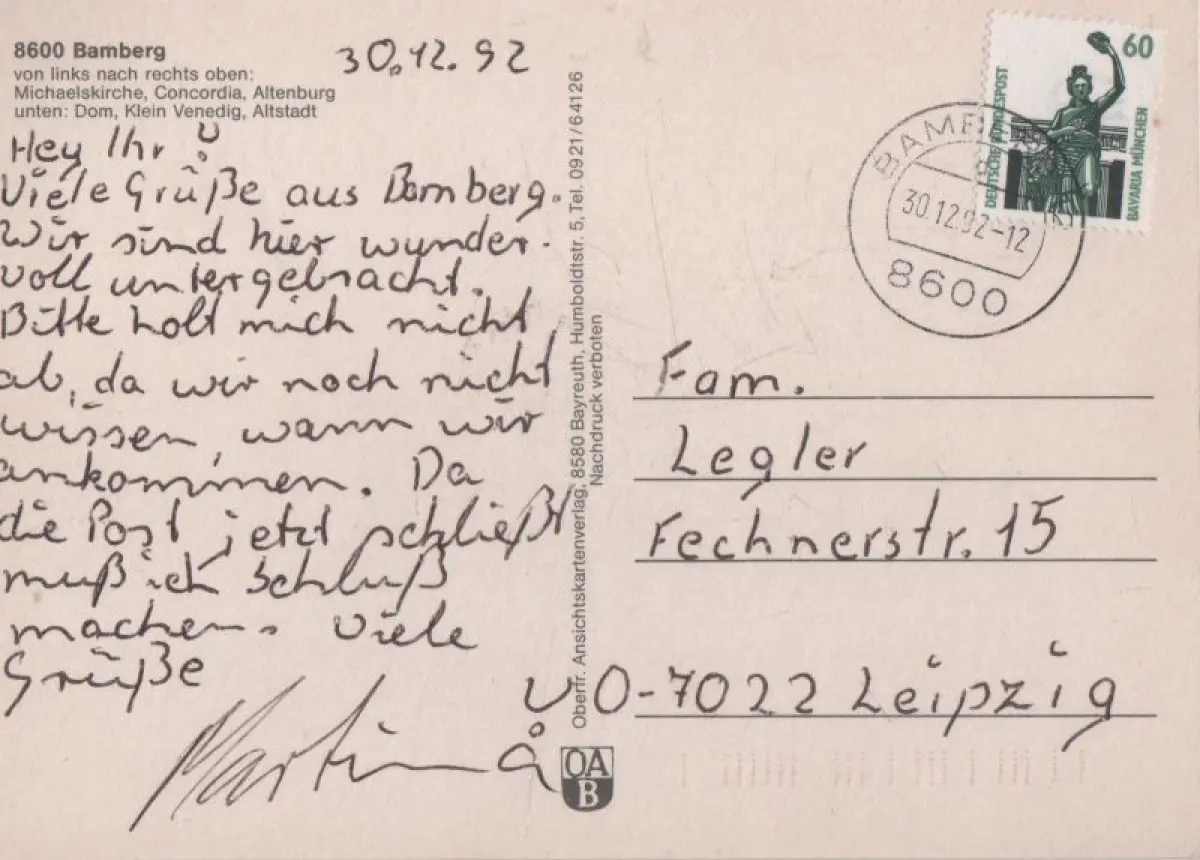 8600 Bamberg
von links nach rechts oben:
Michaelskirche, Concordia, Altenburg
unten: Dom, Klein Venedig, Altstadt
30.12.92
Hey Ihr
Viele Grüße aus Bamberg.
Wir sind hier wunder-
voll untergebracht.
Bitte holt mich nicht
ab, da wir noch nicht
wissen, wann wir
ankommen. Da
die Post jetzt schließt
muß ich Schluß
machen. Viele
Grüße
Martin
Oberfr. Ansichtskartenverlag, 8580 Bayreuth, Humboldtstr. 5, Tel. 0921/64126
Nachdruck verboten
OA
B
60
DEUTSCHE BUNDESPOST
BAVARIA MÜNCHEN
BAMBERG
30.12.92-12
8600
Fam.
Legler
Fechnerstr. 15
O-7022 Leipzig